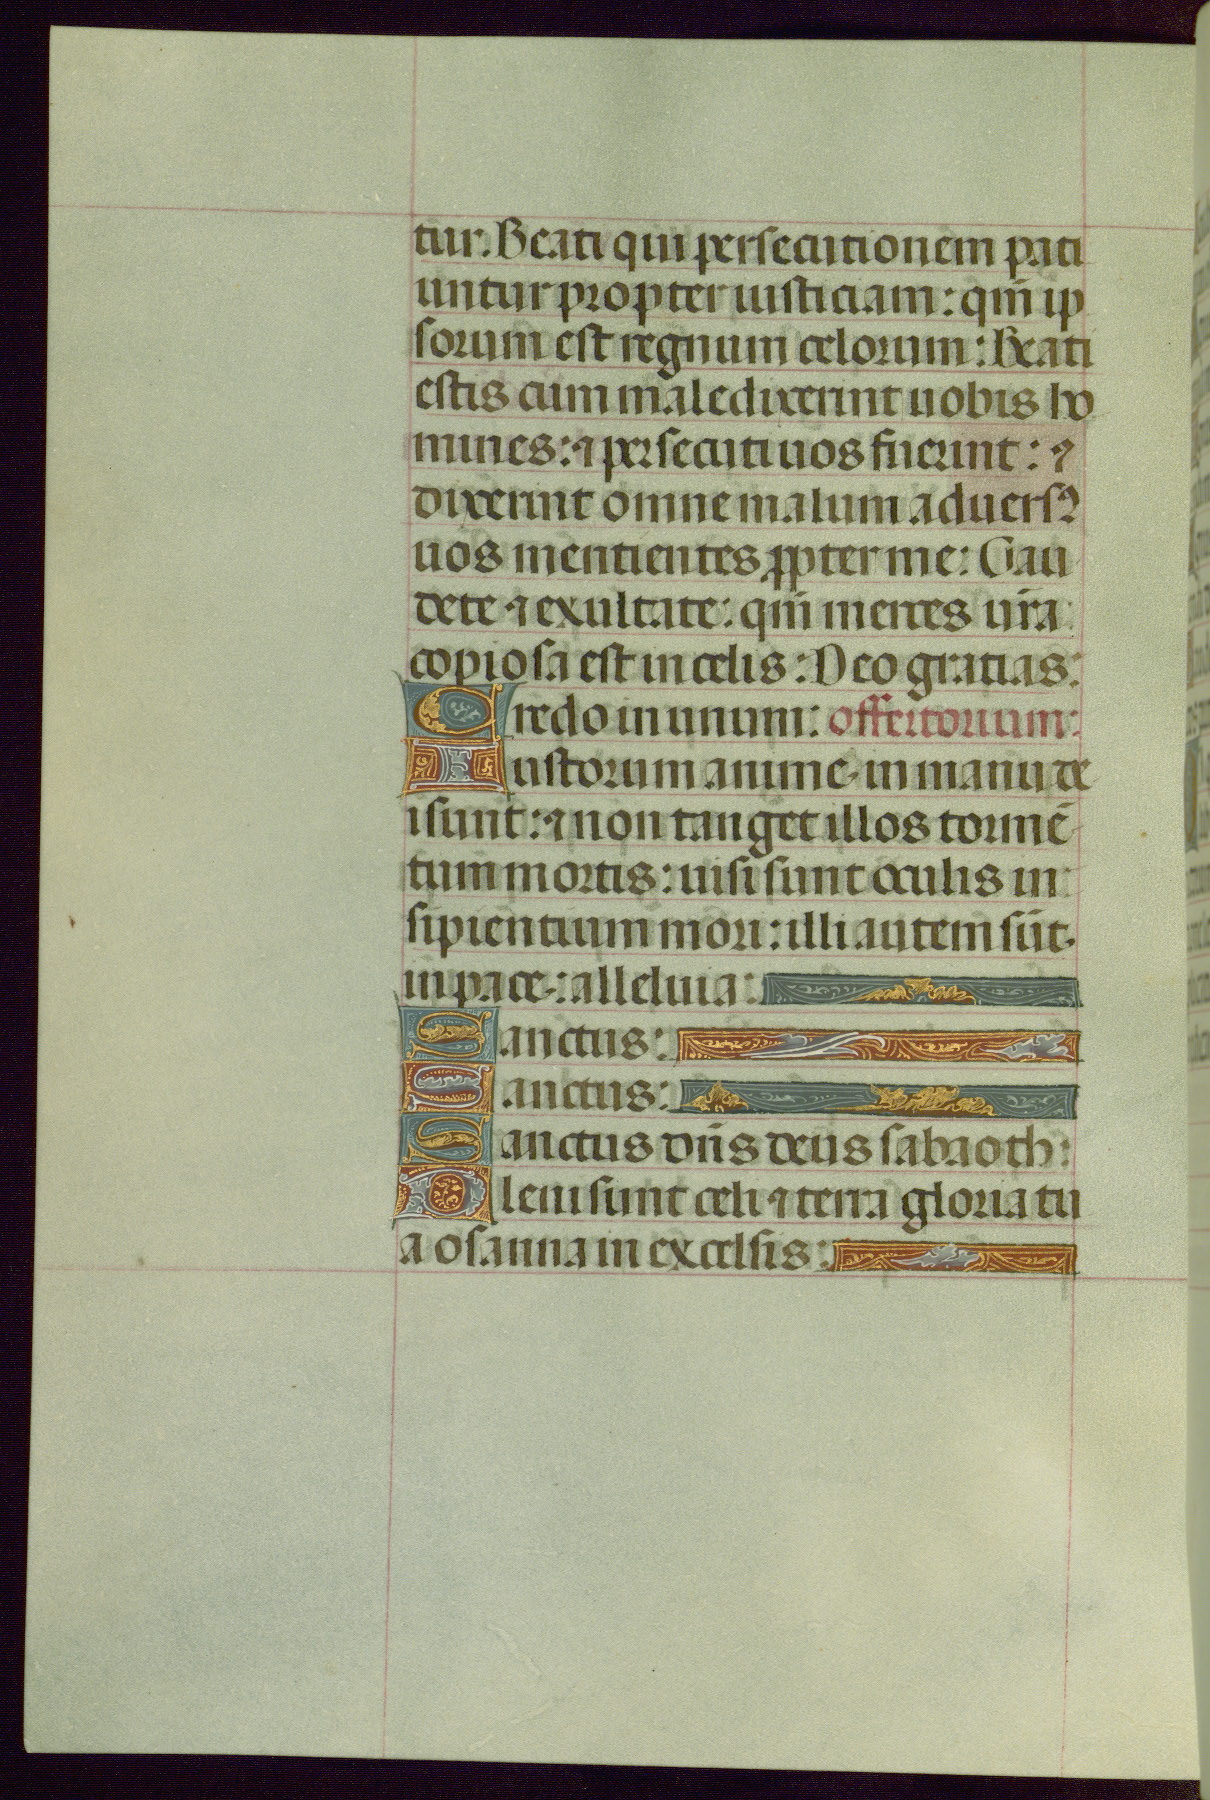 tur. Beati qui persecutionem pati
untur propter iusticiam: qm̄ ip
sorum est regnum celorum: Beati
estis cum maledixerint uobis ho
mines: ⁊ persecuti uos fuerint: ⁊
dixerint omne malum aduersꝰ
uos mentientes ꝓpter me: Gau
dete ⁊ exultate: qm̄ merces ur̄a
copiosa est in celis: Deo gratias:
Credo in unum: offertorium:
Iustorum anime in manu de
i sunt: ⁊ non tanget illos tormē
tum mortis: uisi sunt oculis in
sipientium mori: illi autem sūt
in pace: alleluia:
Sanctus:
Sanctus:
Sanctus dn̄s deus sabaoth:
Pleni sunt celi ⁊ terra gloria tu
a osanna in excelsis: